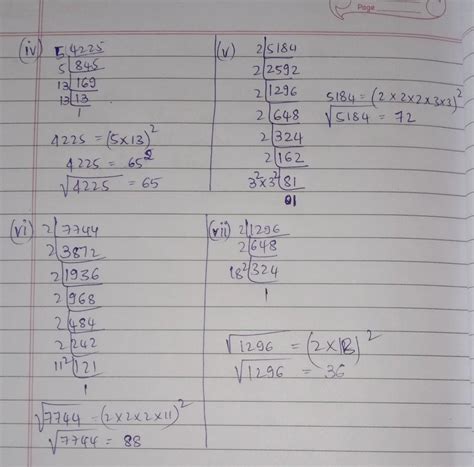 Page
(iv) 5 4225
5 845
13 169
13 13
1
4225 = (5×13)²
4225 = 65²
√4225 = 65
(v) 2 5184
2 2592
2 1296
2 648
2 324
2 162
3²×3² 81
1
5184 = (2×2×2×3×3)²
√5184 = 72
(vi) 2 7744
2 3872
2 1936
2 968
2 484
2 242
11² 121
1
√7744 = (2×2×2×11)²
√7744 = 88
(vii) 2 1296
2 648
18² 324
1
√1296 = (2×18)²
√1296 = 36